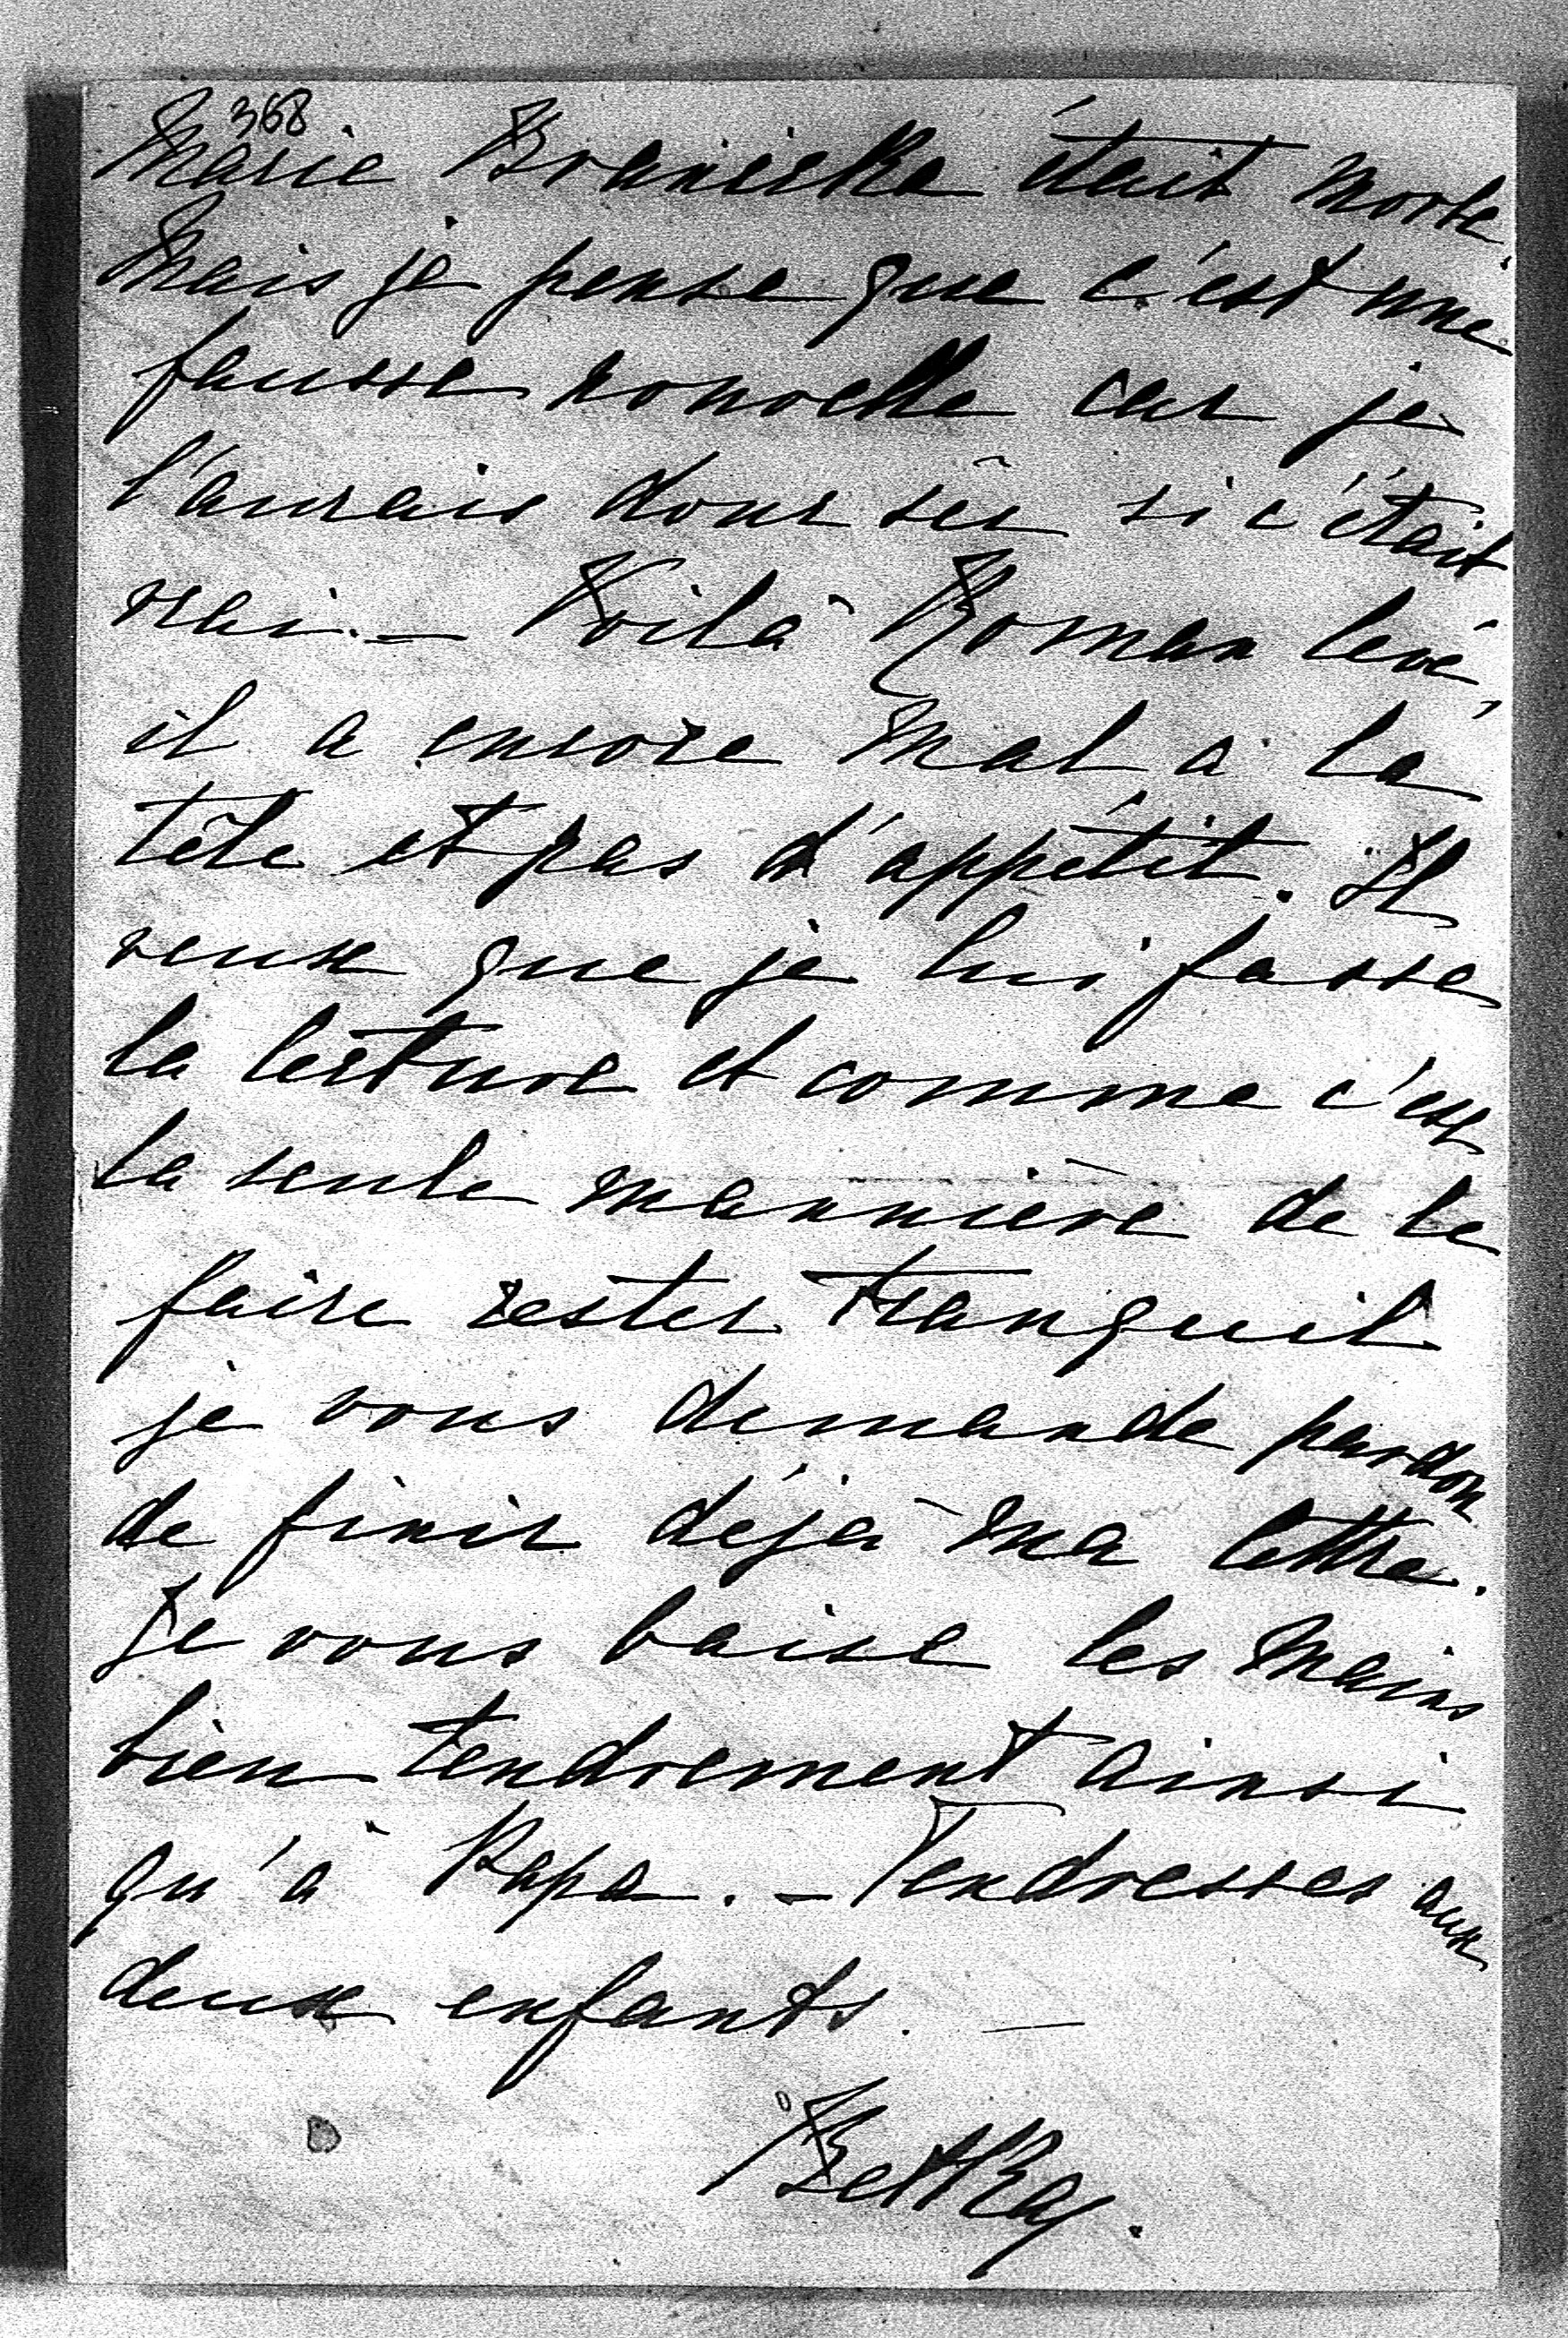 368
Marie Braniska était morte.
Mais je pense que c'est une
fausse nouvelle car je
l'aurais dour sûr si c'était
vrai. — Voilà Roman levé,
il a encore mal à la
tête et pas d'appétit. Il
veux que je lui fasse
la lecture et comme c'est
la seule mannière de le
faire rester tranquil
je vous demande pardon
de finir déjà ma lettre.
Je vous baise les mains
bien tendrement ainsi
qu'à Papa. — Tendresses aux
deux enfants. —
Betka.